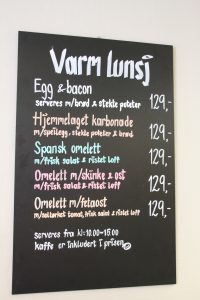 Varm lunsj
Egg & bacon
serveres m/brød & stekte poteter 129,-
Hjemmelaget karbonade
m/speilegg, stekte poteter & brød 129,-
Spansk omelett
m/frisk salat & ristet loff 129,-
Omelett m/skinke & ost
m/frisk salat & ristet loff 129,-
Omelett m/fetaost
m/soltørket tomat, frisk salat & ristet loff 129,-
serveres fra kl: 10.00-15.00
kaffe er inkludert i prisen